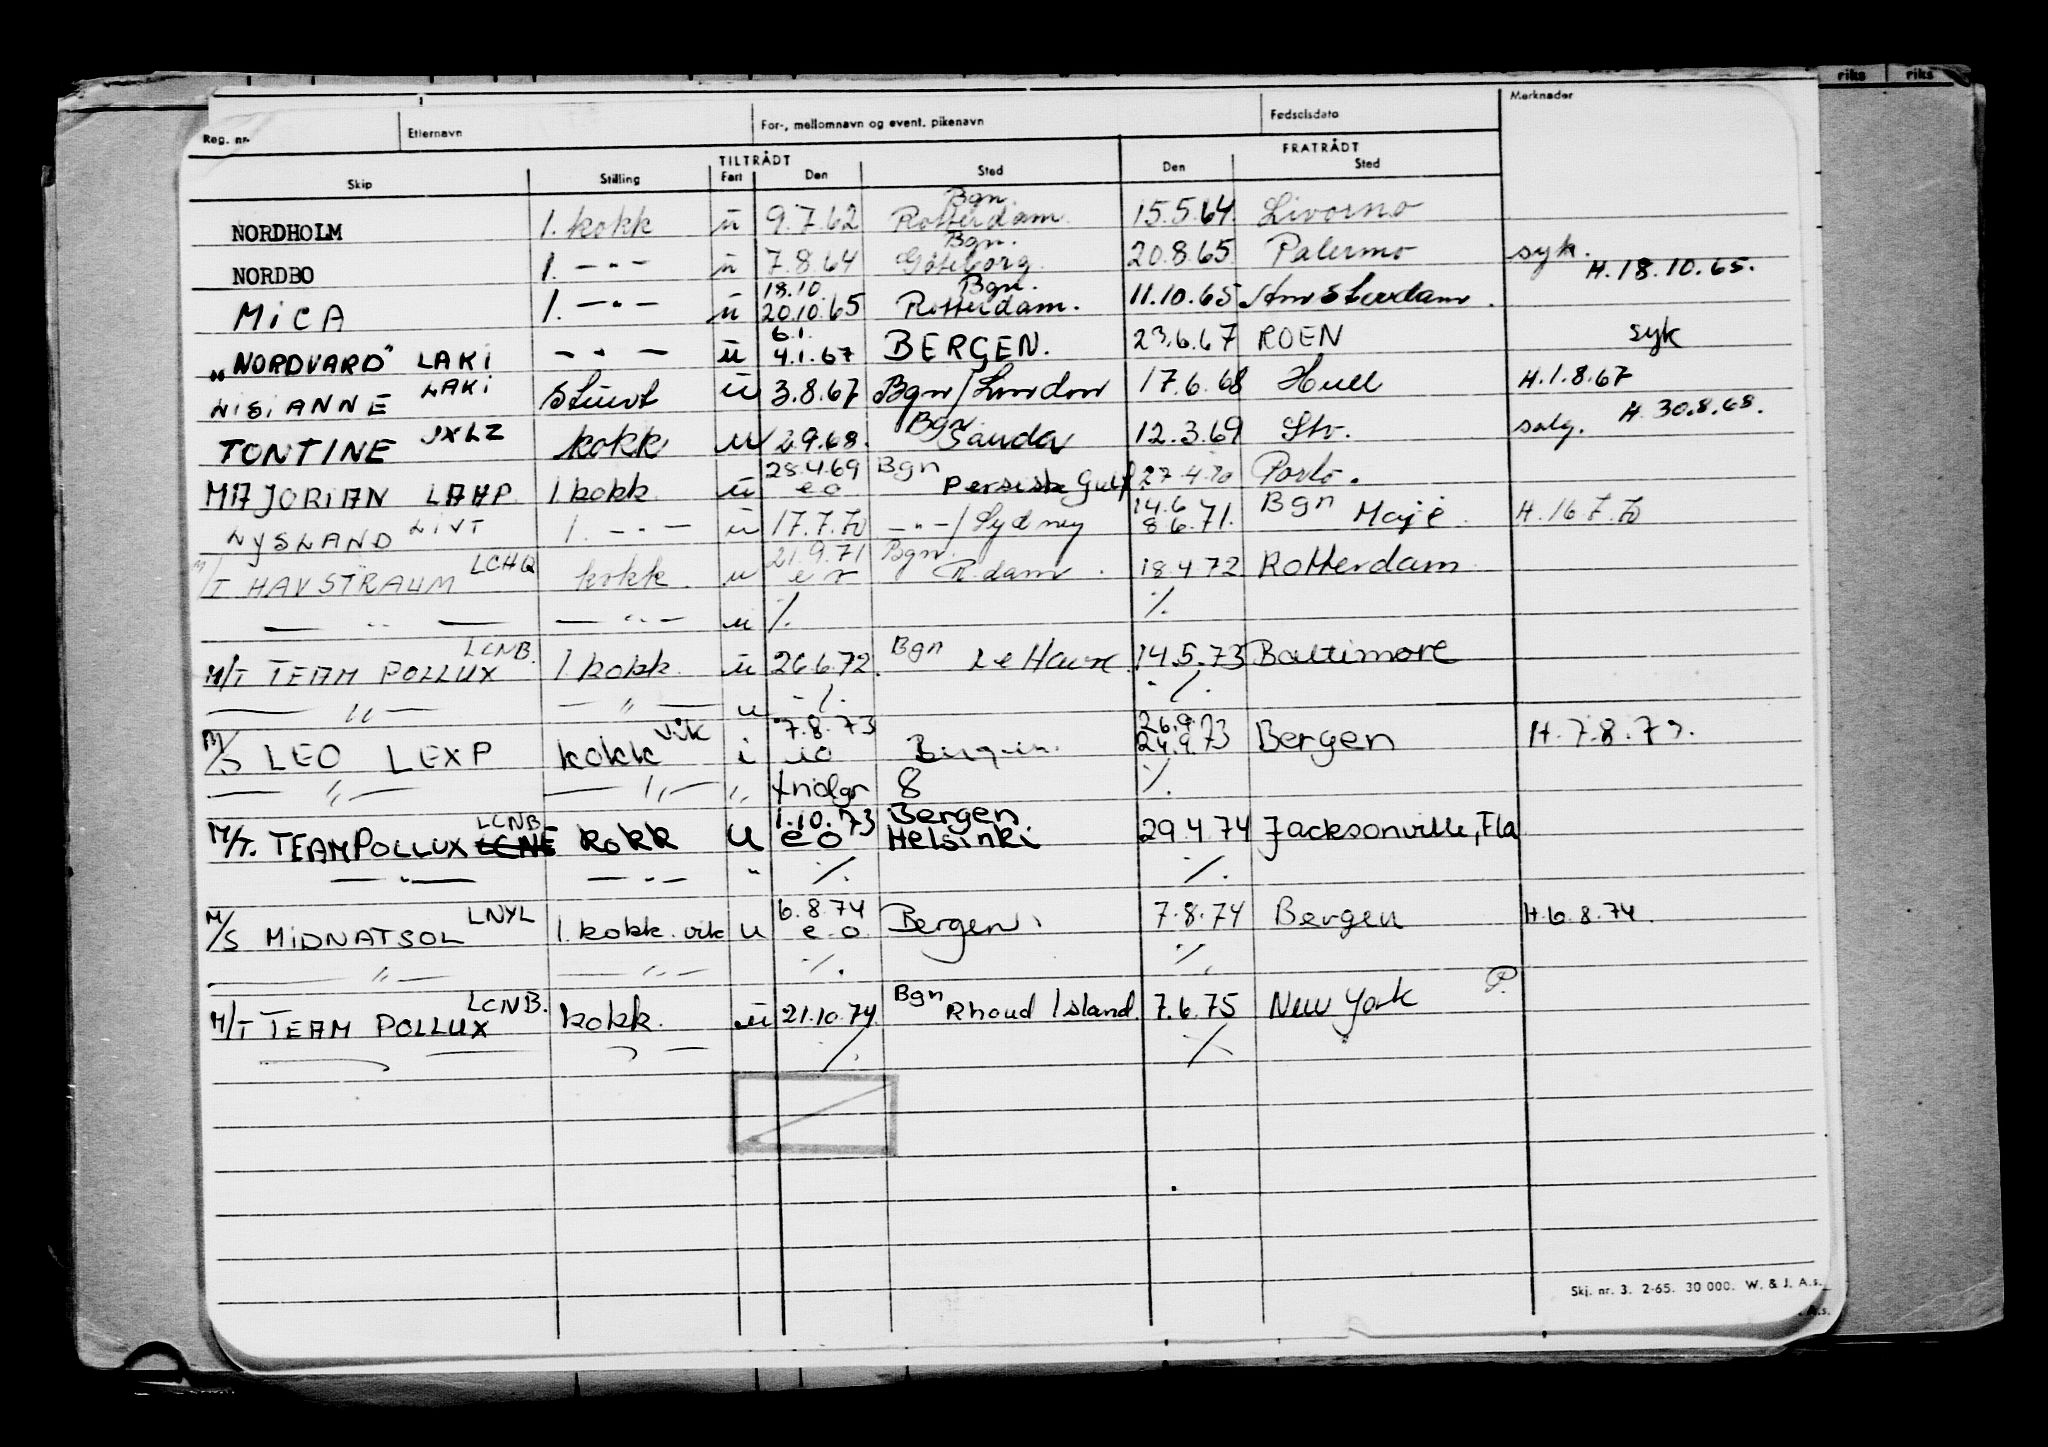 riks riks
Reg. nr. Etternavn For-, mellomnavn og event. pikenavn Fødselsdato Merknader
TILTRÅDT FRATRÅDT
Skip Stilling Fart Den Sted Den Sted
Bgn.
NORDHOLM 1. kokk ū 9.7.62 Rotterdam. 15.5.64. Livorno
Bgn.
NORDBO 1. -"- ū 7.8.64 Göteborg. 20.8.65 Palermo syk. H.18.10.65.
18.10 Bgn.
MiCA 1. -"- ū 20.10.65 Rotterdam. 11.10.65 Amsterdam.
6.1.
"NORDVARD" LAKi -"- ū 4.1.67 BERGEN. 23.6.67 ROEN syk
LISIANNE LAKi Stuert ū 3.8.67 Bgn/London 17.6.68 Hull H.1.8.67
TONTINE JXLZ kokk u 2.9.68. Bgn Sauda 12.3.69 Stv. salg. H.30.8.68.
28.4.69 Bgn
MARJORIAN LAHP 1 kokk ū eo Persiske Gulf 27.4.70 Porto.
14.6
LYSLAND LIVT 1. -"- ū 17.7.70 -"-/Sydney 8.6.71. Bgn H.16.7.70
21.9.71 Bgn.
M/T HAVSTRAUM LCHQ kokk. u R.dam. 18.4.72 Rotterdam
-"- -"- u ./. ./.
M/T TEAM POLLUX LCNB. 1 kokk. ū 26.6.72. Bgn Le Havre 14.5.73 Baltimore
-"- -"- u ./. ./.
7.8.73 26.9.73
M/S LEO LEXP kokk vik i io Bergen. 24.9.73 Bergen H.7.8.73.
-"- -"- " 8 ./.
1.10.73 Bergen
M/T. TEAM POLLUX LCNB kokk u eo Helsinki 29.4.74 Jacksonville, Fla
-"- -"- " ./. ./.
6.8.74
M/S MiDNATSOL LNYL 1. kokk. vik u e.o. Bergen. 7.8.74 Bergen H.6.8.74.
-"- -"- ./. ./.
M/T TEAM POLLUX LCNB. kokk. ū 21.10.74 Bgn Rhoud Island. 7.6.75 New York P.
-"- -"- ./. ./.
Skj. nr. 3. 2-65. 30 000. W. & J. A.s.
A.s.